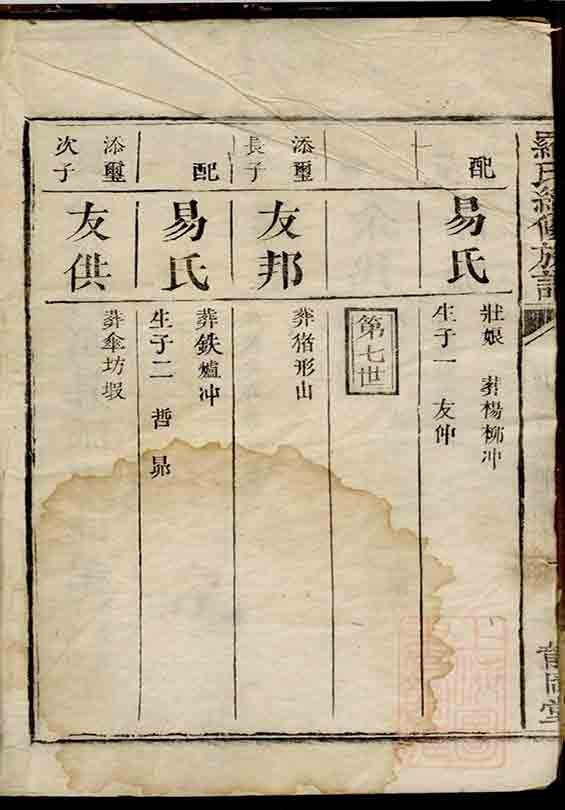 羅氏續修族譜
配
易氏
壯娘 葬楊柳冲
生子一 友仲
第七世
添璽
長子
友邦
葬猪形山
配
易氏
葬鉄爐冲
生子二 哲
添璽
次子
友供
葬傘坊塅